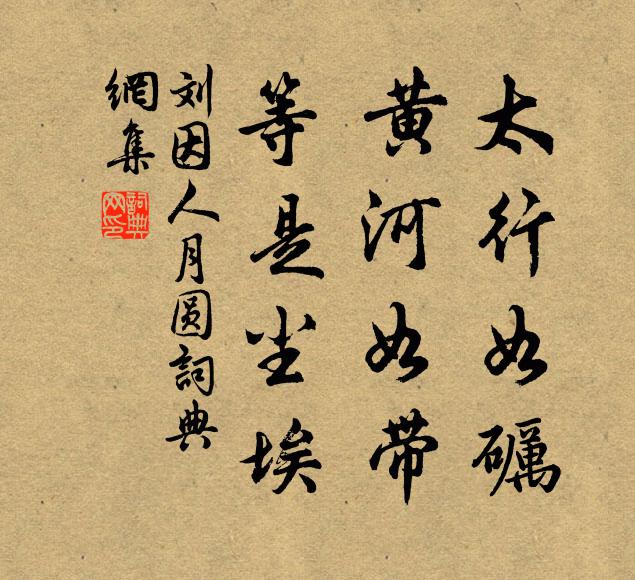 太行如礪
黄河如带
等是尘埃
刘因人月圆詞典
網集
詞典
网印